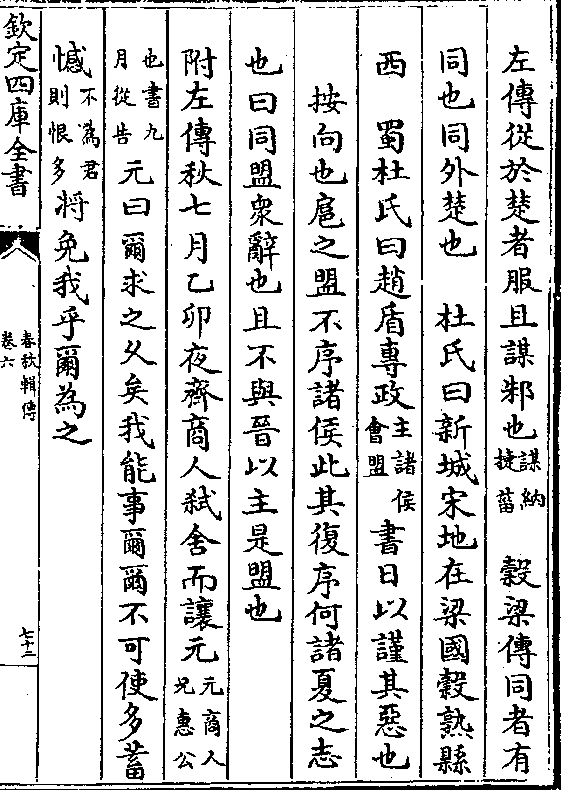 左傳從於楚者服且謀邾也謀納捷菑　穀梁傳同者有
同也同外楚也　杜氏曰新城宋地在梁國穀熟縣
西　蜀杜氏曰趙盾專政主諸侯會盟書日以謹其惡也
按向也扈之盟不序諸侯此其復序何諸夏之志
也曰同盟衆辭也且不與晉以主是盟也
附左傳秋七月乙卯夜齊商人弑舍而讓元元商人兄惠公
也書九月從告元曰爾求之乆矣我能事爾爾不可使多蓄
憾不為君則恨多將免我乎爾為之
欽定四庫全書
春秋輯傳
卷六
七十二